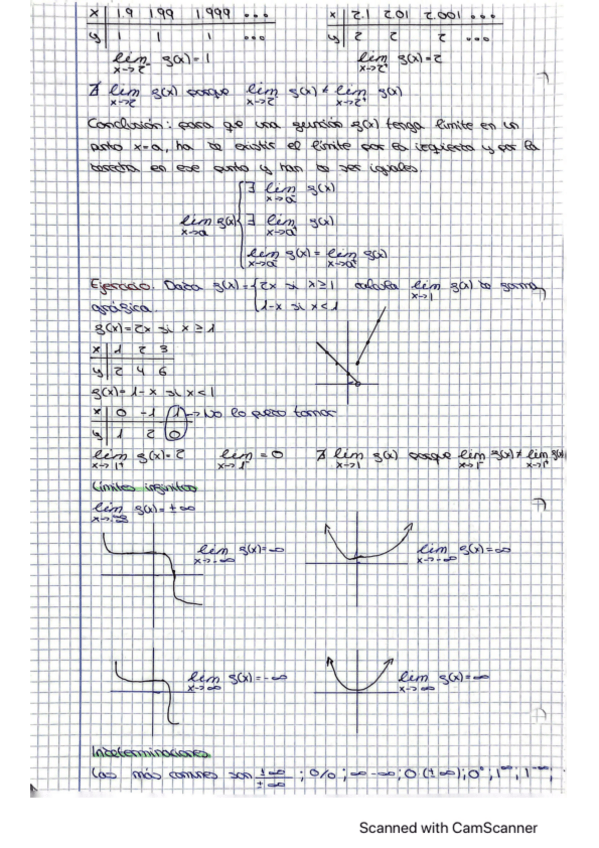 x | 1.9 1.99 1.999 ...
y | 1 1 1 ...
lim x→2⁻ g(x) = 1
x | 2.1 2.01 2.001 ...
y | 2 2 2 ...
lim x→2⁺ g(x) = 2
∄ lim x→2 g(x) porque lim x→2⁻ g(x) ≠ lim x→2⁺ g(x)
Conclusión: para que una función g(x) tenga límite en un
punto x=a, ha de existir el límite por la izquierda y por la
derecha en ese punto y han de ser iguales.
∃ lim x→a⁻ g(x)
lim x→a g(x) { ∃ lim x→a⁺ g(x)
lim x→a⁻ g(x) = lim x→a⁺ g(x)
Ejercicio. Dada g(x) = { 2x si x ≥ 1 calcula lim x→1 g(x) de forma
gráfica. 1-x si x < 1
g(x) = 2x si x ≥ 1
x | 1 2 3
y | 2 4 6
g(x) = 1-x si x < 1
x | 0 -1 1 → No lo puedo tomar
y | 1 2 0
lim x→1⁺ g(x) = 2 lim x→1⁻ = 0 ∄ lim x→1 g(x) porque lim x→1⁻ g(x) ≠ lim x→1⁺ g(x)
Límites infinitos
lim g(x) = ±∞
lim x→-∞ g(x) = ∞
lim x→-∞ g(x) = ∞
lim x→∞ g(x) = -∞
lim x→∞ g(x) = ∞
Indeterminaciones
Las más comunes son ±∞/±∞ ; 0/0 ; ∞-∞ ; 0(±∞) ; 0⁰ ; 1^∞ ; 1^-∞ ;
Scanned with CamScanner